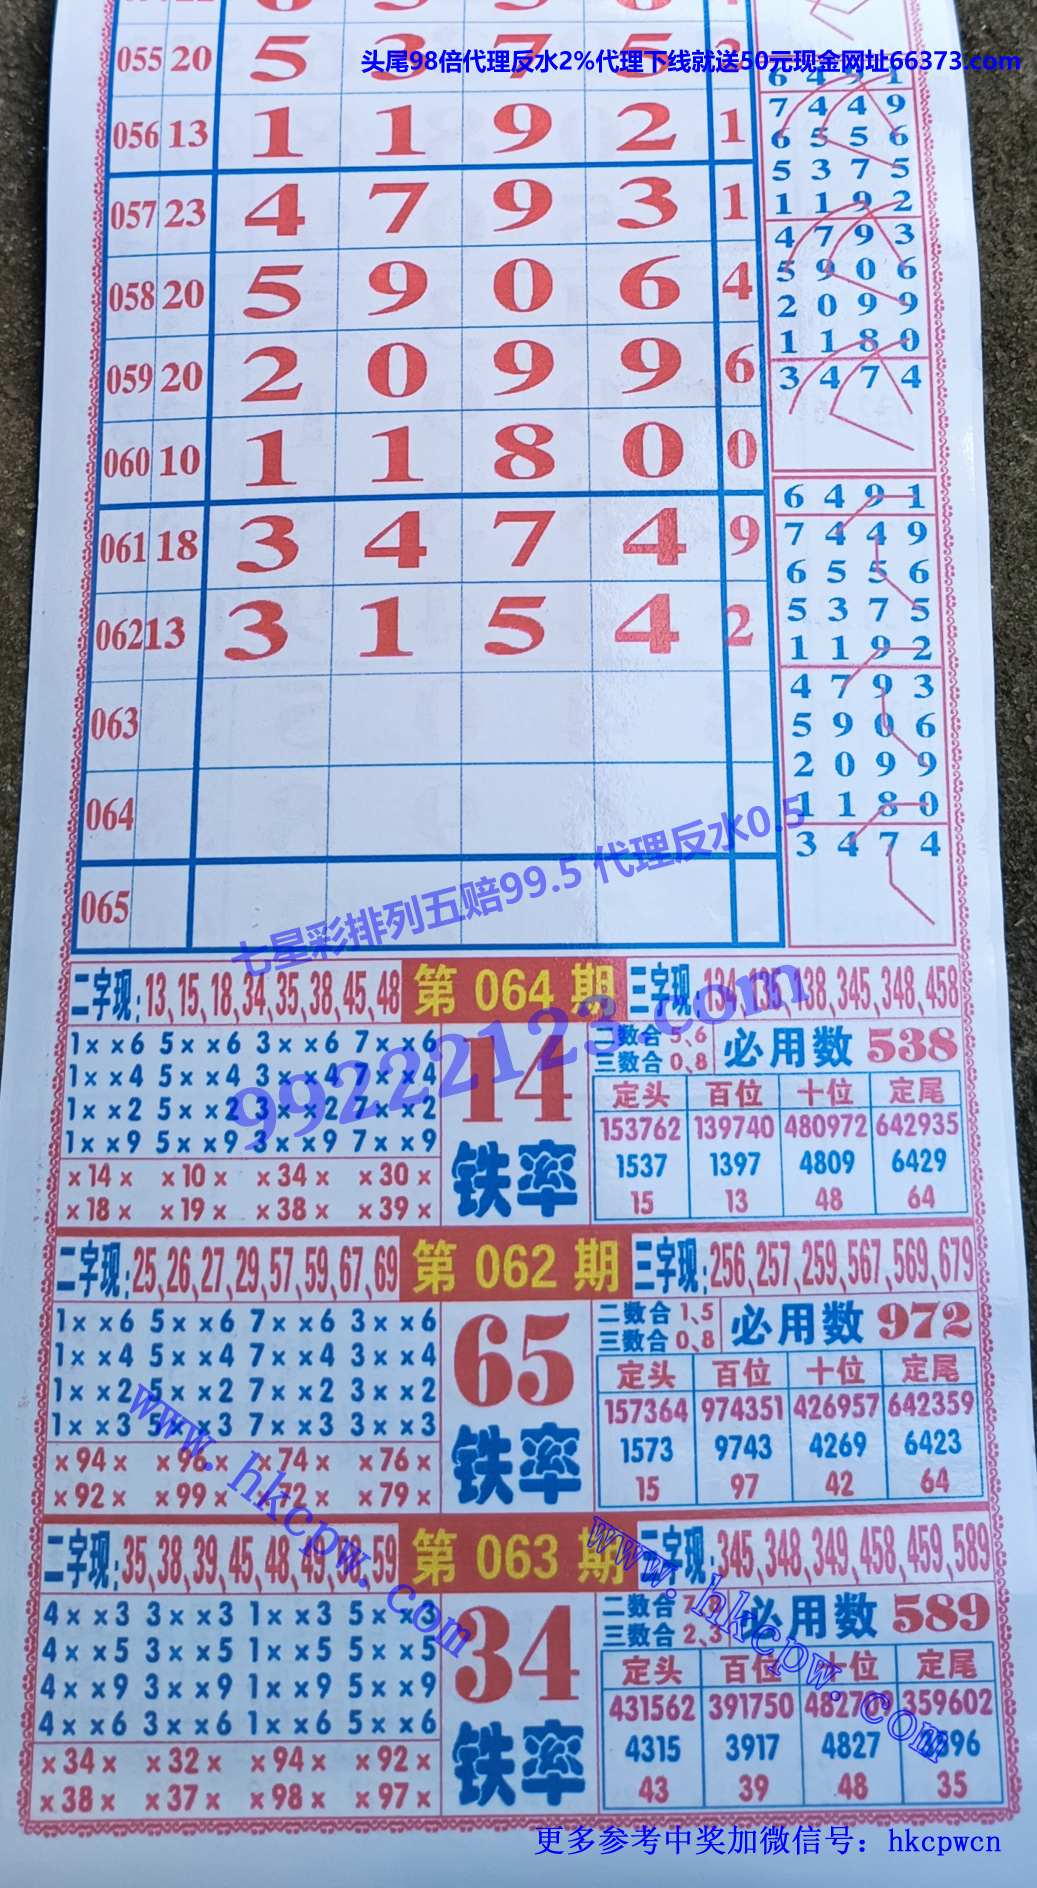 头尾98倍代理反水2%代理下线就送50元现金网址66373.com
055 20 5 3 7 5
056 13 1 1 9 2 1
057 23 4 7 9 3 1
058 20 5 9 0 6 4
059 20 2 0 9 9 6
060 10 1 1 8 0 0
061 18 3 4 7 4 9
062 13 3 1 5 4 2
063
064
065
6 4 9 1
7 4 4 9
6 5 5 6
5 3 7 5
1 1 9 2
4 7 9 3
5 9 0 6
2 0 9 9
1 1 8 0
3 4 7 4
6 4 9 1
7 4 4 9
6 5 5 6
5 3 7 5
1 1 9 2
4 7 9 3
5 9 0 6
2 0 9 9
1 1 8 0
3 4 7 4
七星彩排列五赔99.5 代理反水0.5
99222123.com
二字现:13,15,18,34,35,38,45,48 第 064 期 三字现:134,135,138,345,348,458
1××6 5××6 3××6 7××6
1××4 5××4 3××4 7××4
1××2 5××2 3××2 7××2
1××9 5××9 3××9 7××9
×14× ×10× ×34× ×30×
×18× ×19× ×38× ×39×
14
铁率
二数合 5、6
三数合 0、8
必用数 538
定头 百位 十位 定尾
153762 139740 480972 642935
1537 1397 4809 6429
15 13 48 64
二字现:25,26,27,29,57,59,67,69 第 062 期 三字现:256,257,259,567,569,679
1××6 5××6 7××6 3××6
1××4 5××4 7××4 3××4
1××2 5××2 7××2 3××2
1××3 5××3 7××3 3××3
×94× ×96× ×74× ×76×
×92× ×99× ×72× ×79×
65
铁率
二数合 1、5
三数合 0、8
必用数 972
定头 百位 十位 定尾
157364 974351 426957 642359
1573 9743 4269 6423
15 97 42 64
www.hkcpw.com
二字现:35,38,39,45,48,49,58,59 第 063 期 三字现:345,348,349,458,459,589
4××3 3××3 1××3 5××3
4××5 3××5 1××5 5××5
4××9 3××9 1××9 5××9
4××6 3××6 1××6 5××6
×34× ×32× ×94× ×92×
×38× ×37× ×98× ×97×
34
铁率
二数合 7
三数合 2、3
必用数 589
定头 百位 十位 定尾
431562 391750 359602
4315 3917 4827 3596
43 39 48 35
www.hkcpw.com
更多参考中奖加微信号：hkcpwcn